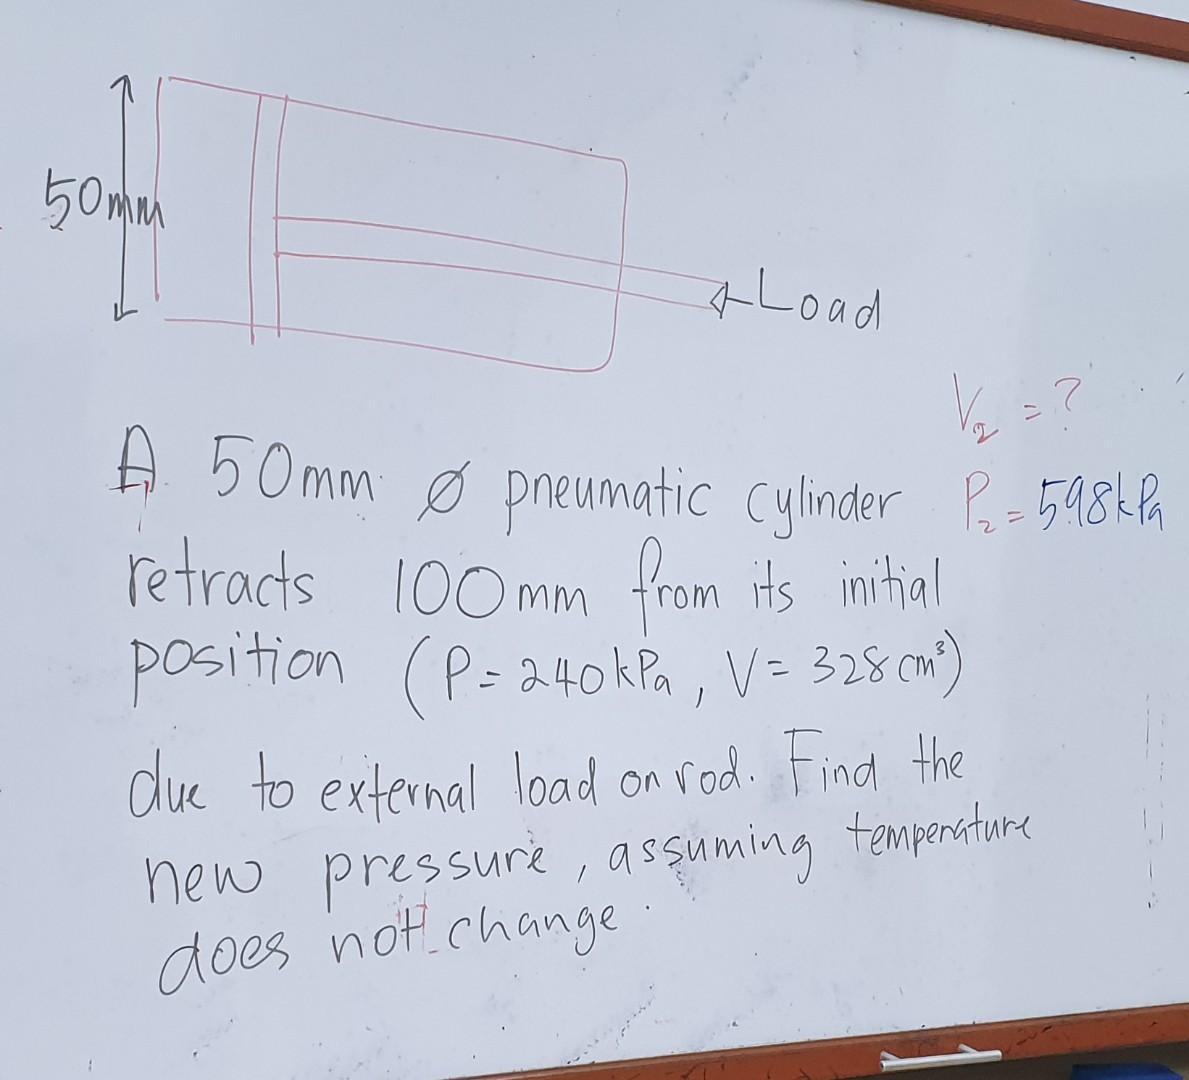 50mm
Load
V₂ = ?
A 50mm Ø pneumatic cylinder
P₂ = 598kPa
retracts 100mm from its initial
position (P = 240kPa, V = 328cm³)
due to external load on rod. Find the
new pressure, assuming temperature
does not change.